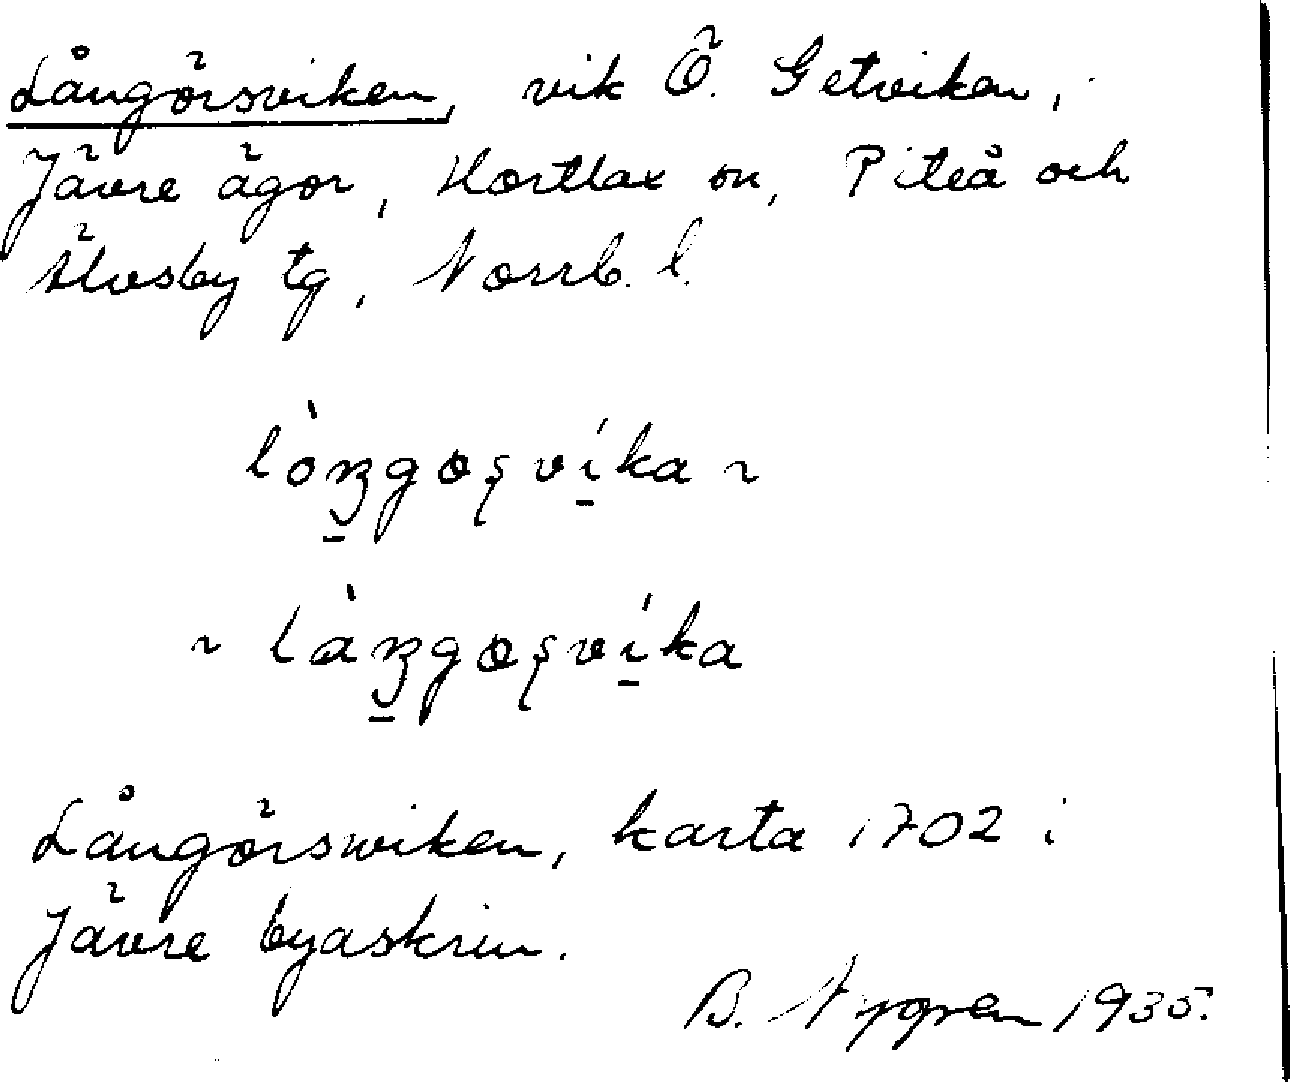 Långörsviken, vik Ö. Getviken,
Jävre ägor, Hortlax sn, Piteå och
Älvsby tg, Norrb. l.
lòŋgo̤ṣví̱ka ~
~ làŋgo̤ṣví̱ka
Långörswiken, karta 1702 i
Jävre byaskrin.
B. Nygren 1935.